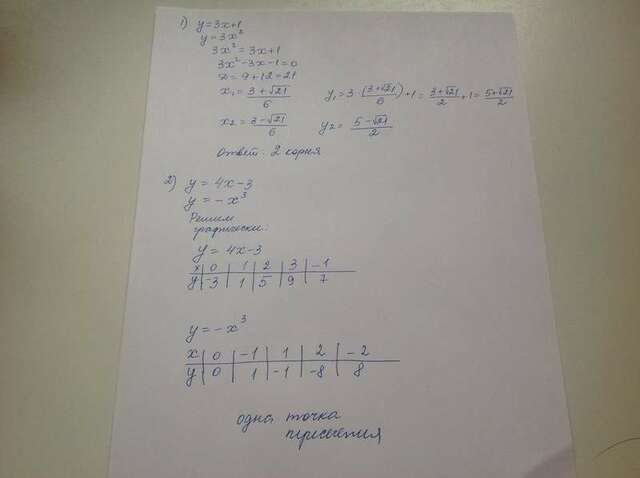 1) y=3x+1
y=3x²
3x²=3x+1
3x²-3x-1=0
D=9+12=21
x₁=(3+√21)/6 y₁=3·((3+√21)/6)+1=(3+√21)/2+1=(5+√21)/2
x₂=(3-√21)/6 y₂=(5-√21)/2
Ответ: 2 корня
2) y=4x-3
y=-x³
Решим
графически:
y=4x-3
x 0 1 2 3 -1
y -3 1 5 9 7
y=-x³
x 0 -1 1 2 -2
y 0 1 -1 -8 8
одна точка
пересечения